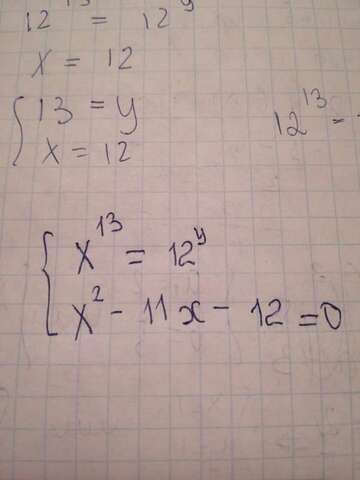 12¹³ = 12ʸ
x = 12
{ 13 = y
x = 12
12¹³ =
{ x¹³ = 12ʸ
x² - 11x - 12 = 0